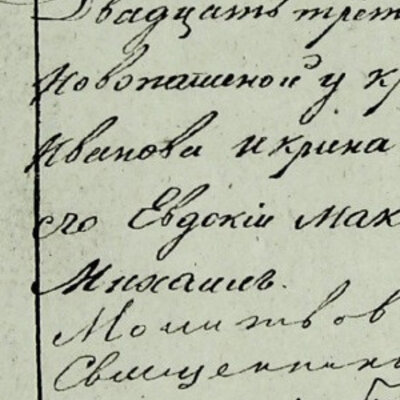 Двадцать трет
Новопашеной у кр
Иванова Икрина
его Евдокіи Мак
Михаилъ.
Молитвов
Священник